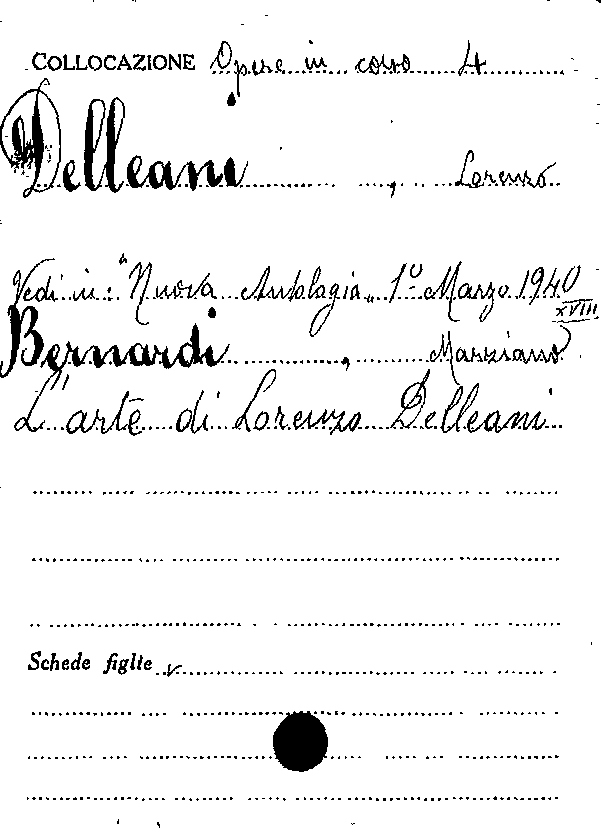 COLLOCAZIONE Opere in corso 4
Delleani, Lorenzo
Vedi in: "Nuova Antologia" 1º Marzo 1940
XVIII
Bernardi, Marziano
L'arte di Lorenzo Delleani
Schede figlie v